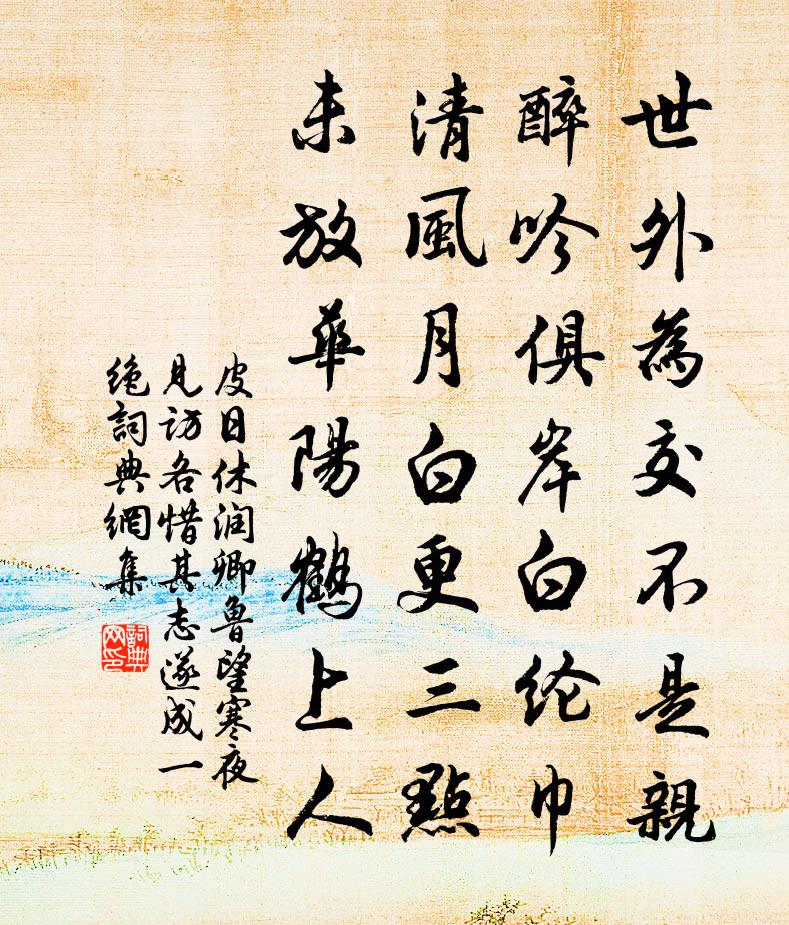 世外為交不是親
醉吟俱岸白纶巾
清風月白更三點
未放華陽鶴上人
皮日休润卿鲁望寒夜
見访各惜其志遂成一
绝詞典網集
詞典
网印